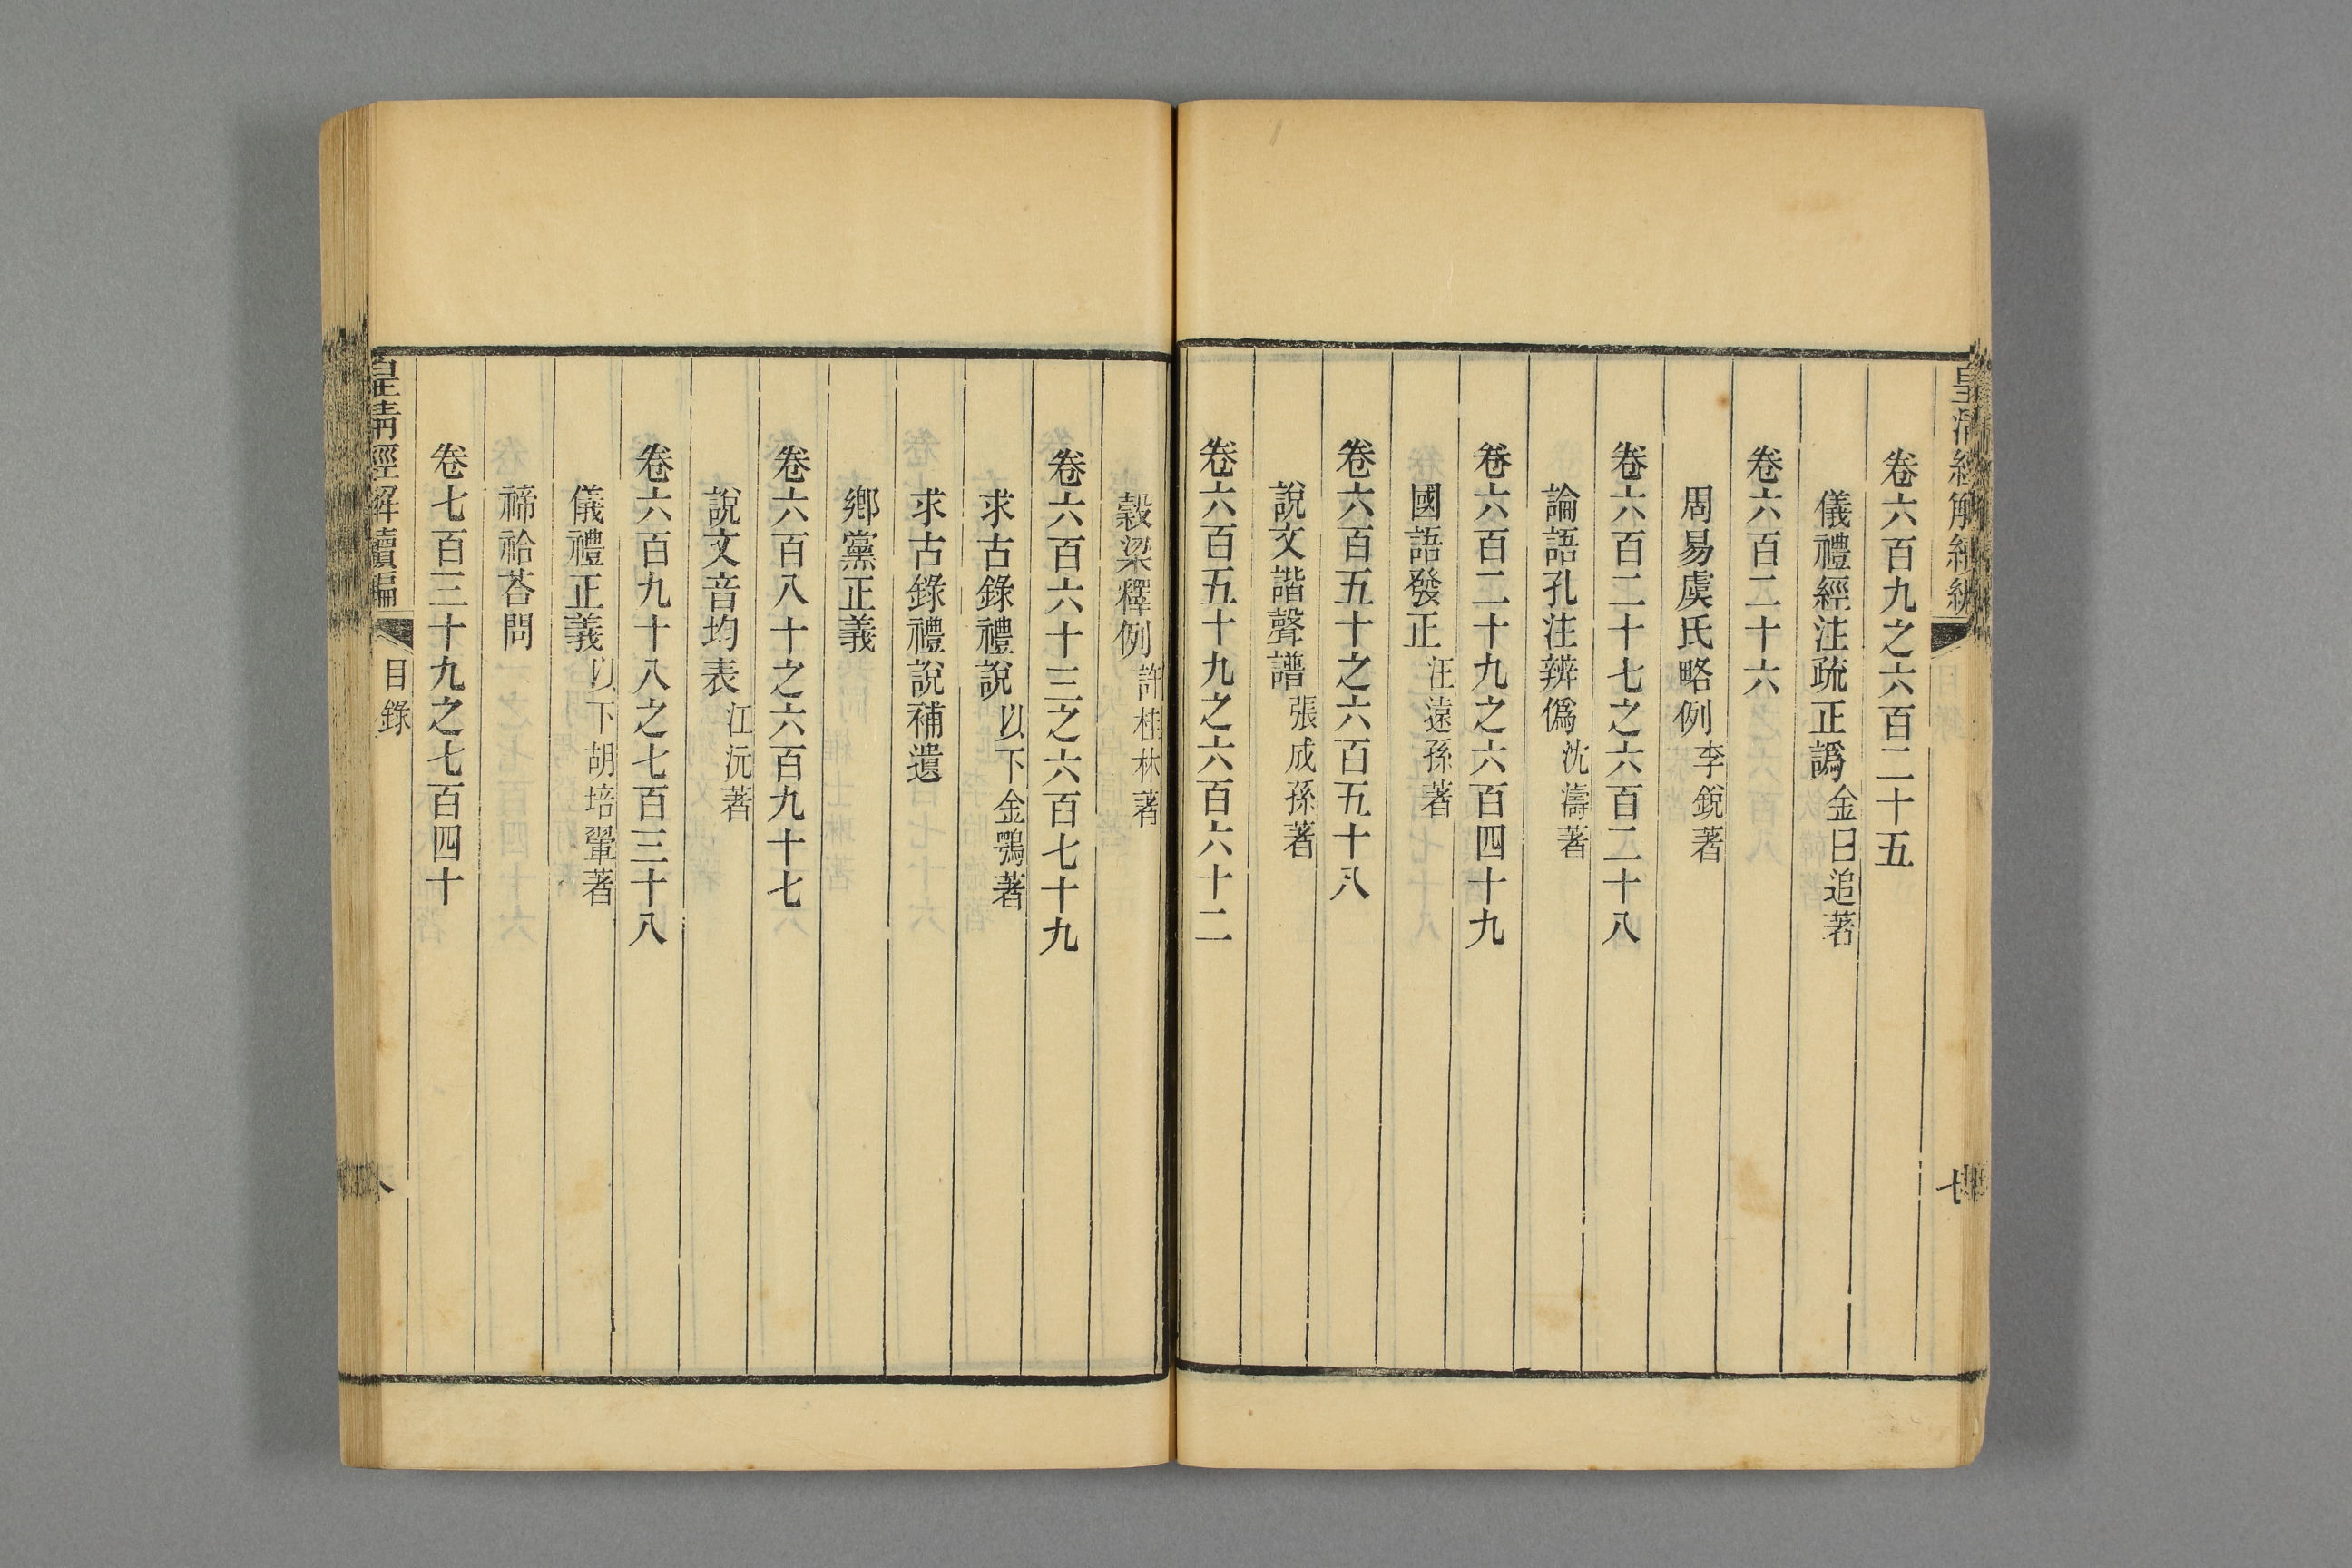 卷六百九之六百二十五
儀禮經注疏正譌金日追著
卷六百二十六
周易虞氏略例李銳著
卷六百二十七之六百二十八
論語孔注辨僞沈濤著
卷六百二十九之六百四十九
國語發正汪遠孫著
卷六百五十之六百五十八
說文諧聲譜張成孫著
卷六百五十九之六百六十二
穀梁釋例許桂林著
卷六百六十三之六百七十九
求古錄禮說以下金鶚著
求古錄禮說補遺
鄉黨正義
卷六百八十之六百九十七
說文音均表江沅著
卷六百九十八之七百三十八
儀禮正義以下胡培翬著
禘祫荅問
卷七百三十九之七百四十
皇清經解續編 目錄 八